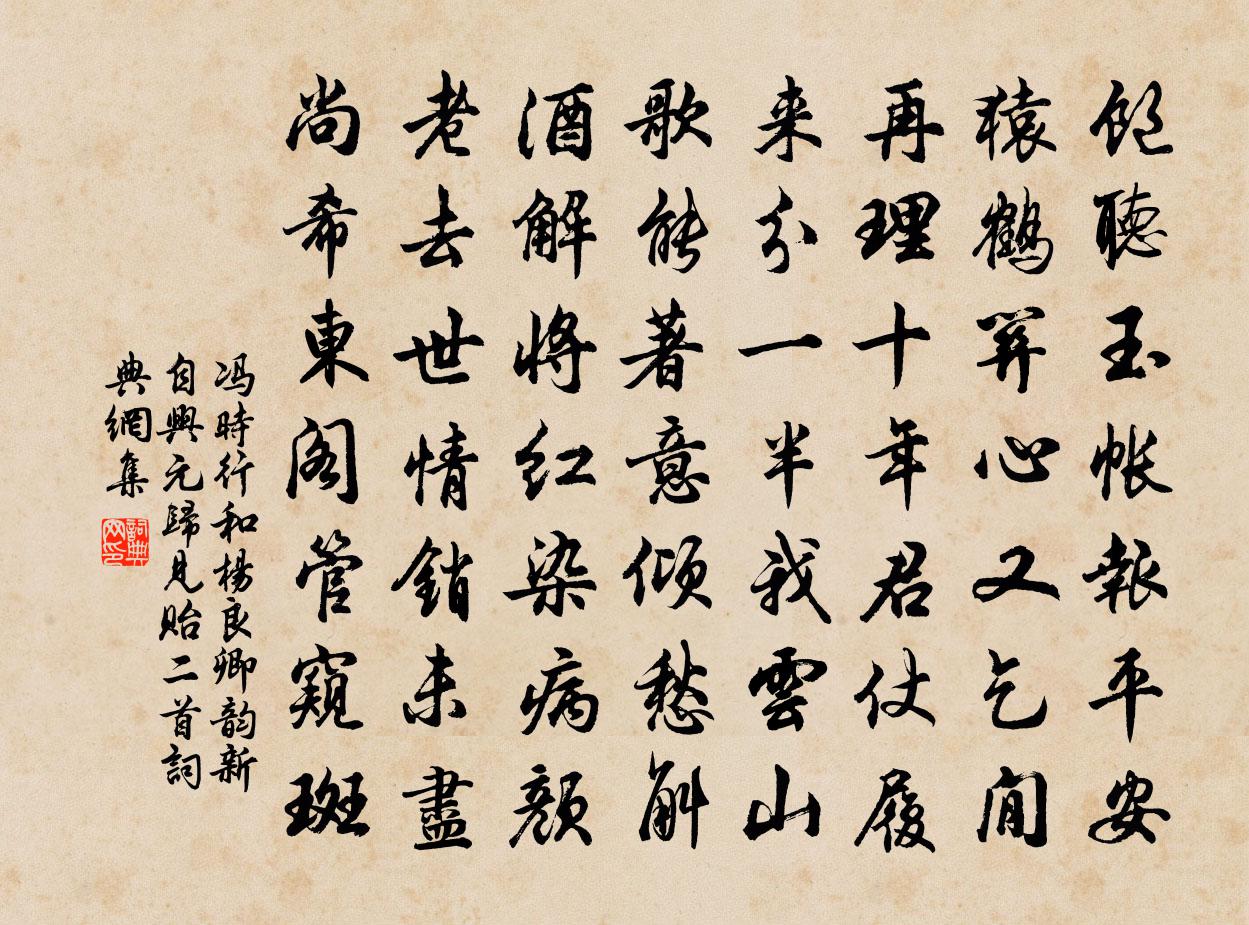 饱聽玉帐報平安
猿鶴關心又乞閒
再理十年君仗履
来分一半我雲山
歌能著意倾愁斛
酒解將红染病顏
老去世情銷未盡
尚希東阁管窺斑
冯時行和楊良卿韵新
自興元歸見贻二首詞
典網集
詞典
网印